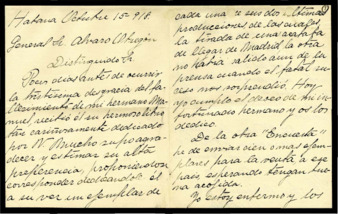 Habana Octubre 15-918.
General Sr. Alvaro Obregón
Distinguido Sr.
Pocos dias antes de ocurrir
la tristisima desgracia del fa-
llecimiento de mi hermano Ma-
nuel recibió él su hermoso libro
tan cariñosamente dedicado
por V. Mucho supo agra-
decer y estimar su alta
preferencia, proponiendose
corresponder dedicandole él
a su vez un ejemplar de
cada una de sus dos últimas
producciones de las cuales
la tirada de una acababa
de llegar de Madrid, la otra
no habia salido aun de la
prensa cuando el fatal su-
ceso nos sorprendió. Hoy
yo cumplo el deseo de mi in-
fortunado hermano y os los
dedico.
De la otra
he de enviar cien o mas ejem-
plares para la venta a ese
pais esperando tengan bue-
na acogida.
Yo estoy enfermo y los